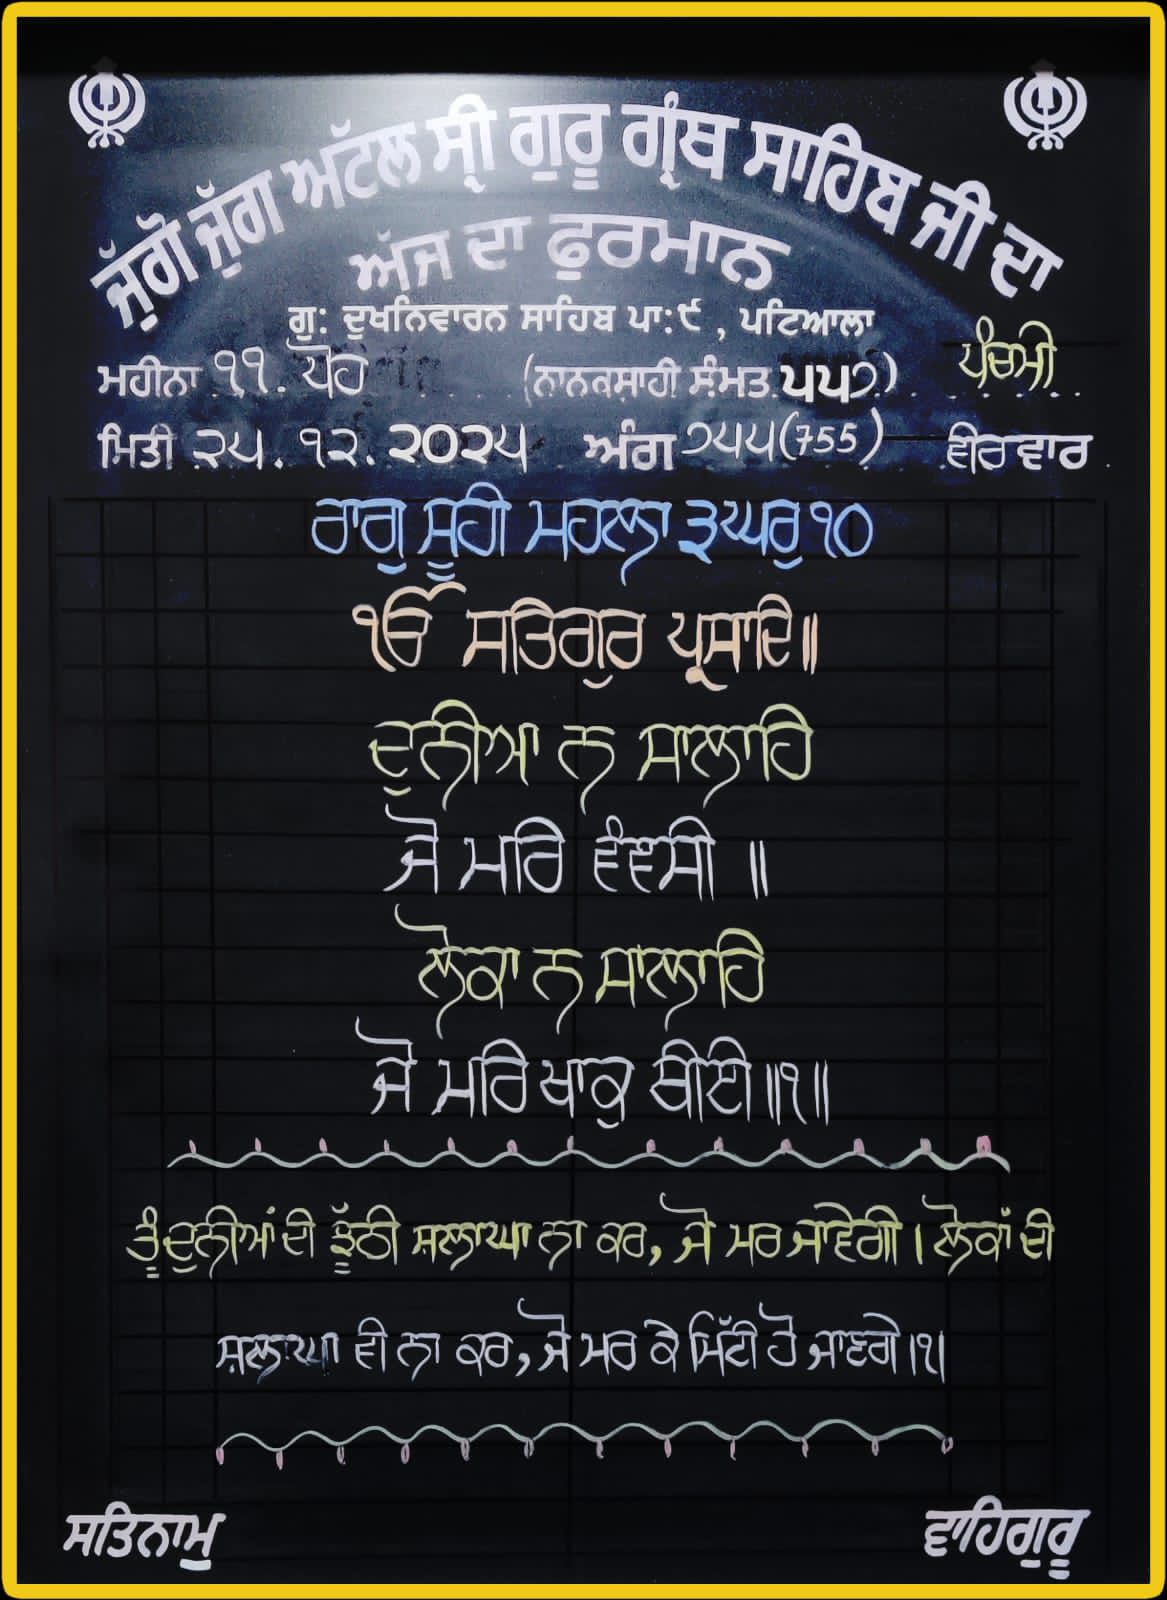 ਜੁੱਗੋ ਜੁੱਗ ਅਟੱਲ ਸ੍ਰੀ ਗੁਰੂ ਗ੍ਰੰਥ ਸਾਹਿਬ ਜੀ ਦਾ
ਅੱਜ ਦਾ ਫੁਰਮਾਨ
ਗੁ: ਦੁਖਨਿਵਾਰਨ ਸਾਹਿਬ ਪਾ:੯ , ਪਟਿਆਲਾ
ਮਹੀਨਾ ੧੧. ਪੋਹ (ਨਾਨਕਸਾਹੀ ਸੰਮਤ ੫੫੭) ਪੰਚਮੀ
ਮਿਤੀ ੨੫.੧੨.੨੦੨੫ ਅੰਗ ੭੫੫(755) ਵੀਰਵਾਰ
ਰਾਗੁ ਸੂਹੀ ਮਹਲਾ ੩ ਘਰੁ ੧੦
ੴ ਸਤਿਗੁਰ ਪ੍ਰਸਾਦਿ॥
ਦੁਨੀਆ ਨ ਸਾਲਾਹਿ
ਜੋ ਮਰਿ ਵੰਞਸੀ ॥
ਲੋਕਾ ਨ ਸਾਲਾਹਿ
ਜੋ ਮਰਿ ਖਾਕੁ ਥੀਈ॥੧॥
ਤੂੰ ਦੁਨੀਆਂ ਦੀ ਝੂੱਠੀ ਸ਼ਲਾਘਾ ਨਾ ਕਰ, ਜੋ ਮਰ ਜਾਵੇਗੀ। ਲੋਕਾਂ ਦੀ
ਸ਼ਲਾਘਾ ਵੀ ਨਾ ਕਰ, ਜੋ ਮਰ ਕੇ ਮਿੱਟੀ ਹੋ ਜਾਣਗੇ।੧।
ਸਤਿਨਾਮੁ ਵਾਹਿਗੁਰੂ